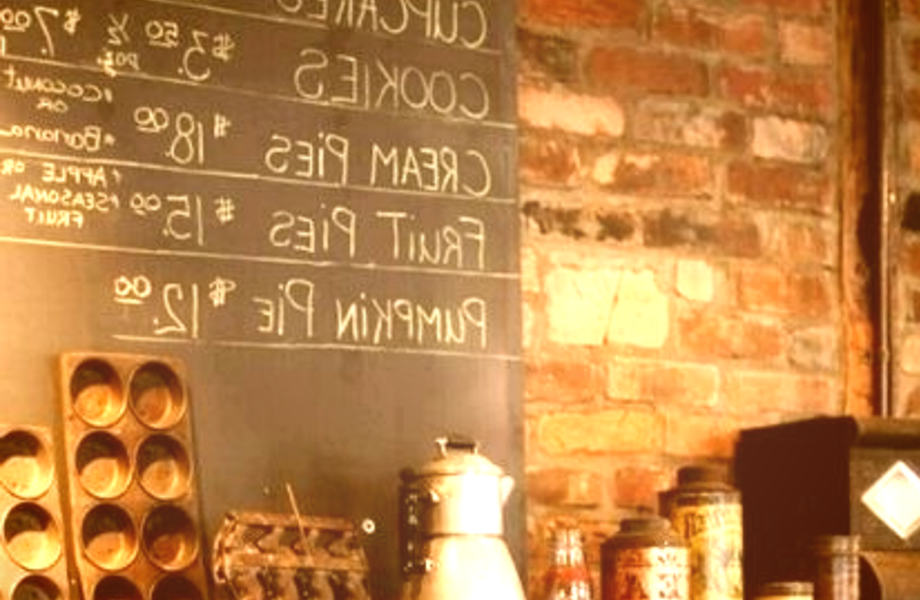 CUPCAKES
COOKIES $3.50 ½ DOZ. $7.00
CREAM PIES $18.00 *Banana OR *COCONUT
FRUIT PIES $15.00 *APPLE OR *SEASONAL FRUIT
PUMPKIN PIE $12.00